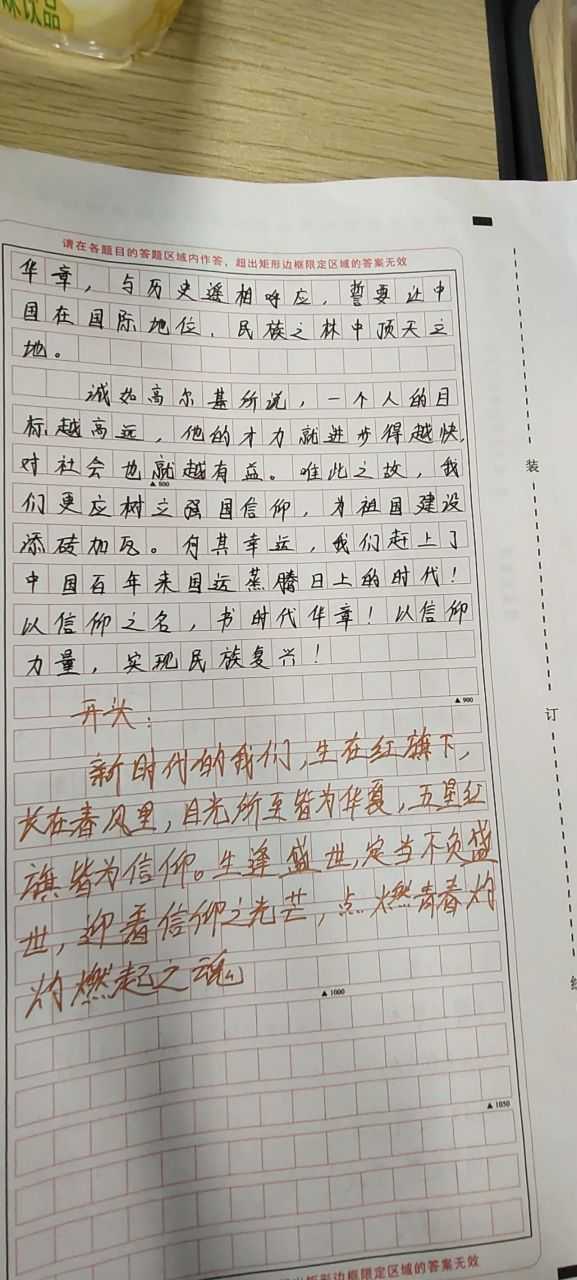 味饮品
请在各题目的答题区域内作答，超出矩形边框限定区域的答案无效
华章，与历史遥相呼应，誓要让中
国在国际地位、民族之林中顶天立
地。
诚如高尔基所说，一个人的目
标越高远，他的才力就进步得越快，
对社会也就越有益。唯此之故，我
▲800
们更应树立强国信仰，为祖国建设
添砖加瓦。何其幸运，我们赶上了
中国百年来国运蒸腾日上的时代！
以信仰之名，书时代华章！以信仰
力量，实现民族复兴！
▲900
开头：
新时代的我们，生在红旗下，
长在春风里，目光所至皆为华夏，五星红
旗皆为信仰。生逢盛世，定当不负盛
世，迎着信仰之光芒，点燃青春灼
灼燃起之魂
▲1000
▲1050
超出矩形边框限定区域的答案无效
装
订